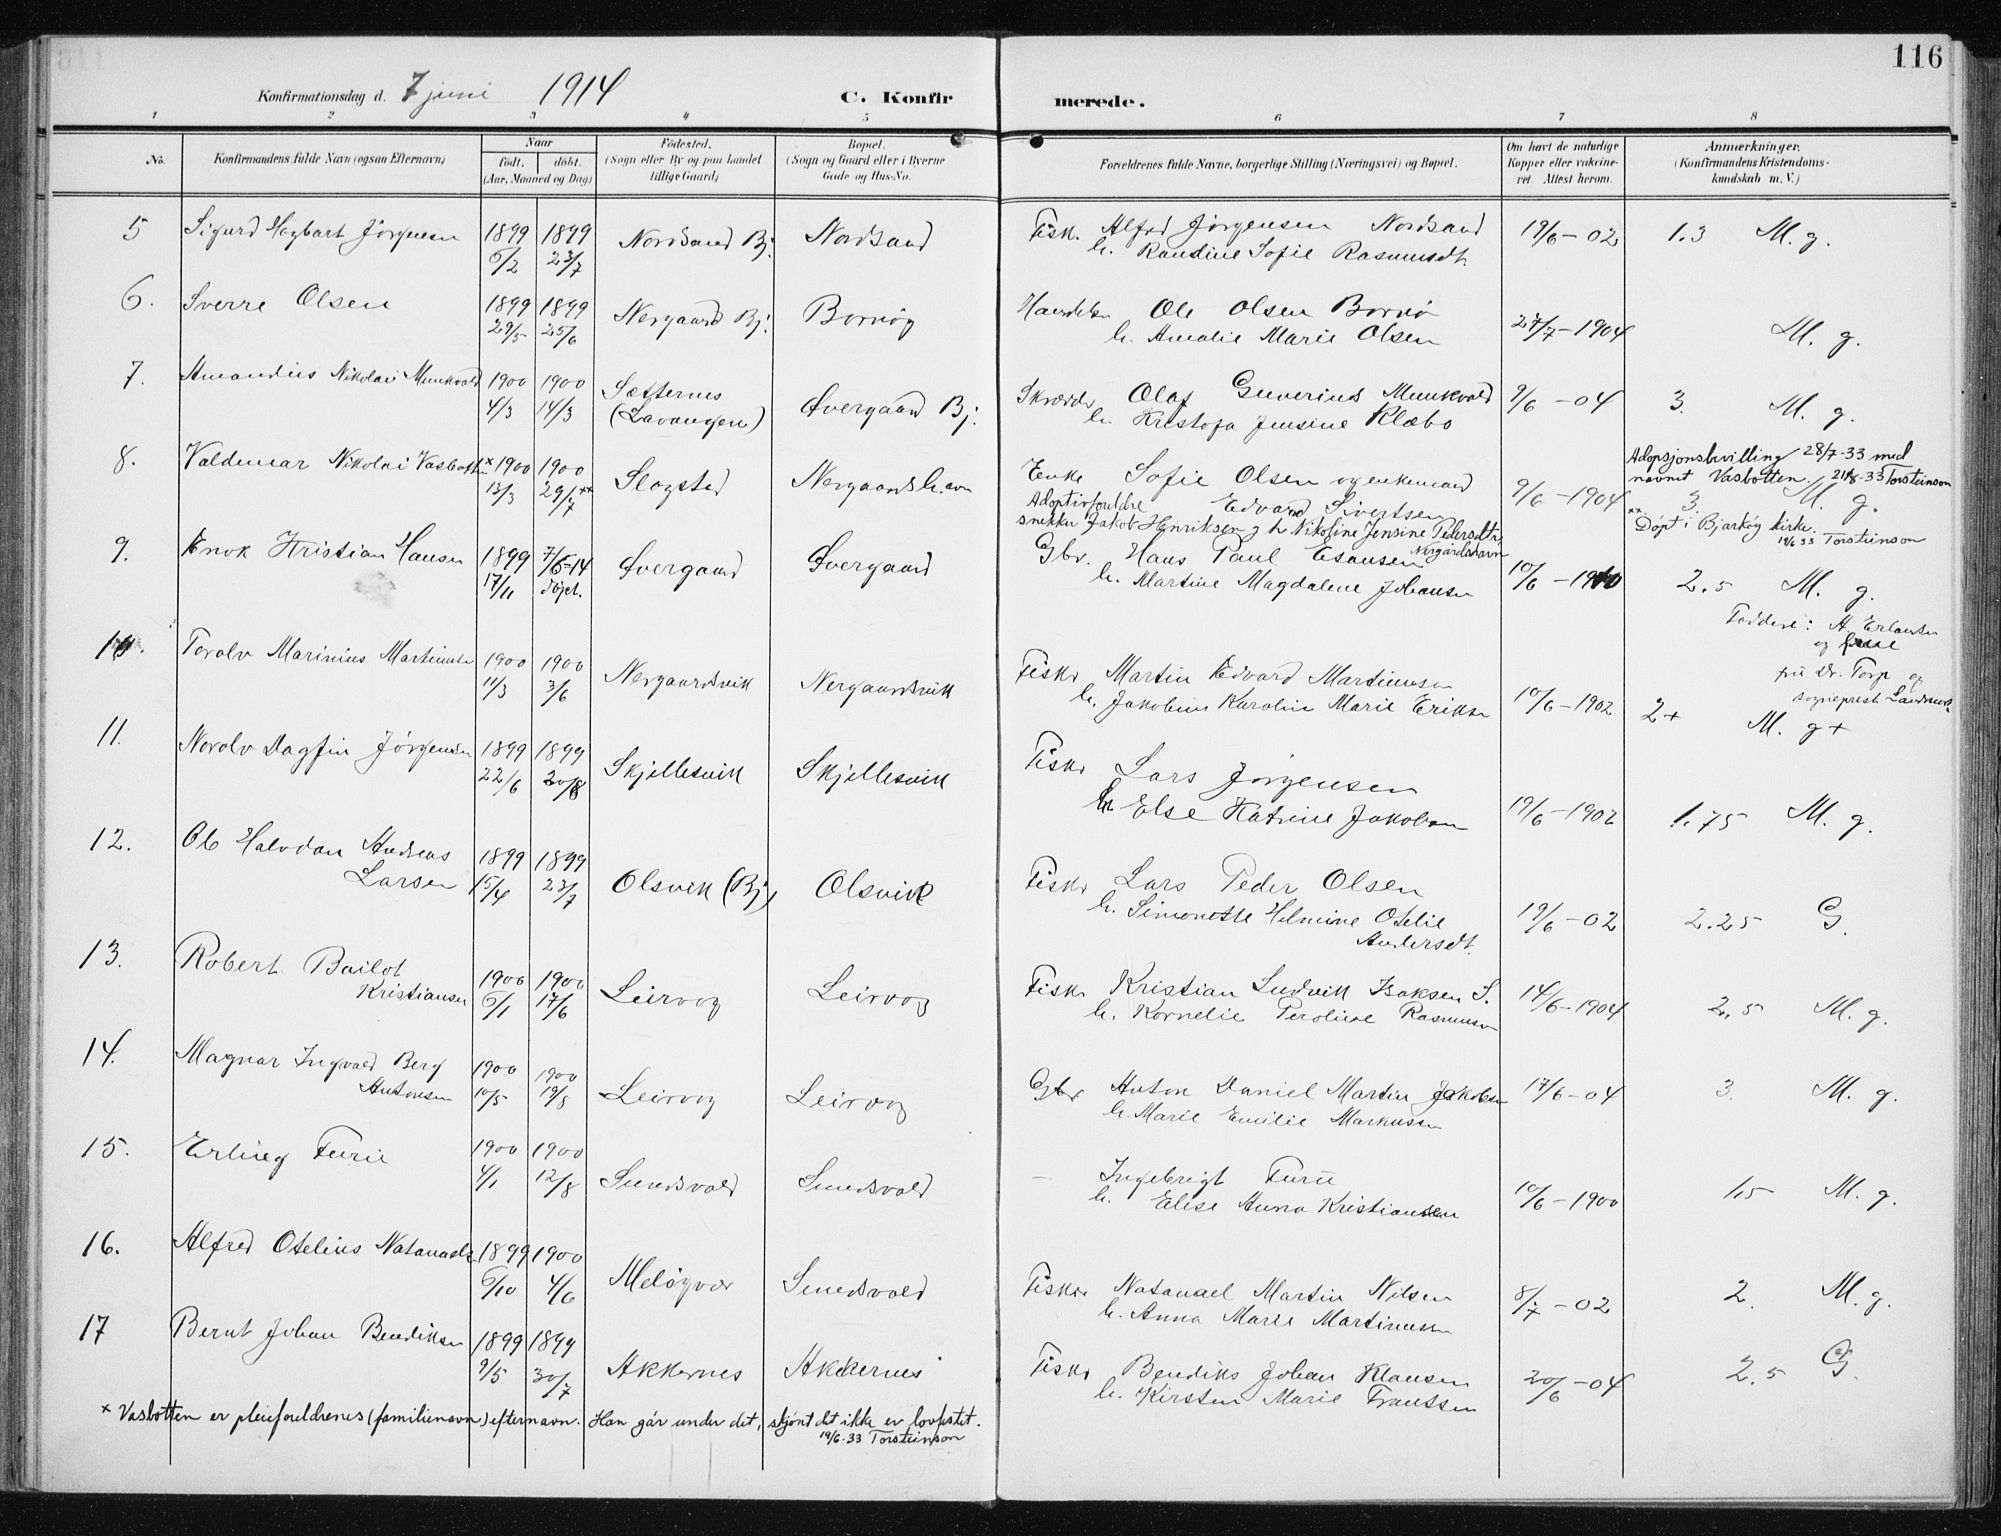 116
Konfirmationsdag d. 7 juni 1914 C. Konfirmerede.
1 2 3 4 5 6 7 8
No. Konfirmandens fulde Navn (ogsaa Efternavn) Naar födt. döbt. (Aar, Maaned og Dag) Födested. (Sogn eller By og paa Landet tillige Gaard) Bopæl. (Sogn og Gaard eller i Byerne Gade og Hus-No. Forældrenes fulde Navne, borgerlige Stilling (Næringsvei) og Bopæl. Om havt de naturlige Kopper eller vaccineret. Attest herom. Anmærkninger. (Konfirmandens Kristendomskundskab m. V.)
5 Sigurd Hagbart Jörgensen 1899 6/2 1899 23/7 Nordsand Bj. Nordsand Fisk. Alfred Jörgensen Nordsand 19/6 - 02 1.3 M. g.
h. Randine Sofie Rasmusdt.
6. Sverre Olsen 1899 29/5 1899 25/6 Nergaard Bj. Bornöy Handelsm Ole Olsen Bornö 27/7 - 1904 M. g.
h. Amalie Marie Olsen
7. Amandus Nikolai Munkvold 1900 4/3 1900 14/3 Sætternes (Lavangen) Övergaard Bj. Skrædder Olaf Severius Munkvold 9/6 - 04 3. M. g.
h. Kristofa Jensine Klæbo
8. Valdemar Nikolai Vasbotten x 1900 13/3 1900 29/7 xx Slagsted Nergaardsh.avn Enke Sofie Olsen og enkemand Edvard Sivertsen 9/6 - 1904 3. M. g.
Adoptivforeldre snekker Jakob Henriksen og h. Nikoline Jensine Pedersdtr. Nergårdshavn
Adopsjonsbevilling 28/7-33 med navnet Vasbotten. 21/8-33 Torsteinson
xx Döpt i Bjarköy kirke. 19/6 33 Torsteinson
9. Enok Kristian Hansen 1899 17/11 7/6-14 döpt. Övergaard Övergaard Gbr. Hans Paul Esausen 10/6 - 1910 2.5 M. g.
h. Martine Magdalene Johansen
Faddere: A. Erlandsen og frue
fru Dr. Torp og
sogneprest Landmark
10. Toralv Marinius Martinsen 1900 11/3 1900 3/6 Nergaardsvik Nergaardsvik Fisker Martin Edvard Martinsen 10/6 - 1902 2+ M. g+
h. Jakobine Karoline Marie Eriks
11. Norolv Dagfin Jörgensen 1899 22/6 1899 20/8 Skjellesvik Skjellesvik Fisker Lars Jörgensen 19/6 - 1902 1.75 M. g.
h. Else Katrine Jakobsen
12. Ole Halvdan Andreas Larsen 1899 15/4 1899 23/7 Olsvik (Bj.) Olsvik Fisker Lars Peder Olsen 19/6 - 02 2.25 G.
h. Simonette Helmine Otelie Andersdt.
13. Robert Bailot Kristiansen 1900 6/1 1900 17/6 Leirvog Leirvog Fisker Kristian Ludvik Isaksen S. 14/6 - 1904 2.5 M. g.
h. Kornelie Peroline Rasmussen
14. Magnar Ingvald Berg Antonsen 1900 10/5 1900 19/8 Leirvog Leirvog Gbr Anton Daniel Martin Jakobsen 17/6 - 04 3. M. g.
h. Marie Emilie Markussen
15. Erling Furu 1900 4/1 1900 12/8 Sundsvold Sundsvold - Ingebrigt Furu 10/6 - 1900 1.5 M. g.
h. Elise Anna Kristiansen
16. Alfred Otelius Natanaels 1899 6/10 1900 4/6 Melöyvær Sundsvold Fisker Natanael Martin Nilsen 8/7 - 02 2. M. g.
h. Anna Marie Martinussen
17 Bernt Johan Bendiksen 1899 9/5 1899 30/7 Akkernes Akkernes Fisker Bendiks Johan Klausen 20/6 - 04 2.5 G.
h. Kirsten Marie Frantsen
x Vasbotten er pleieforeldrenes (familienavn) efternavn. Han går under det, skjønt det ikke er lovfestet.
19/6.33 Torsteinson